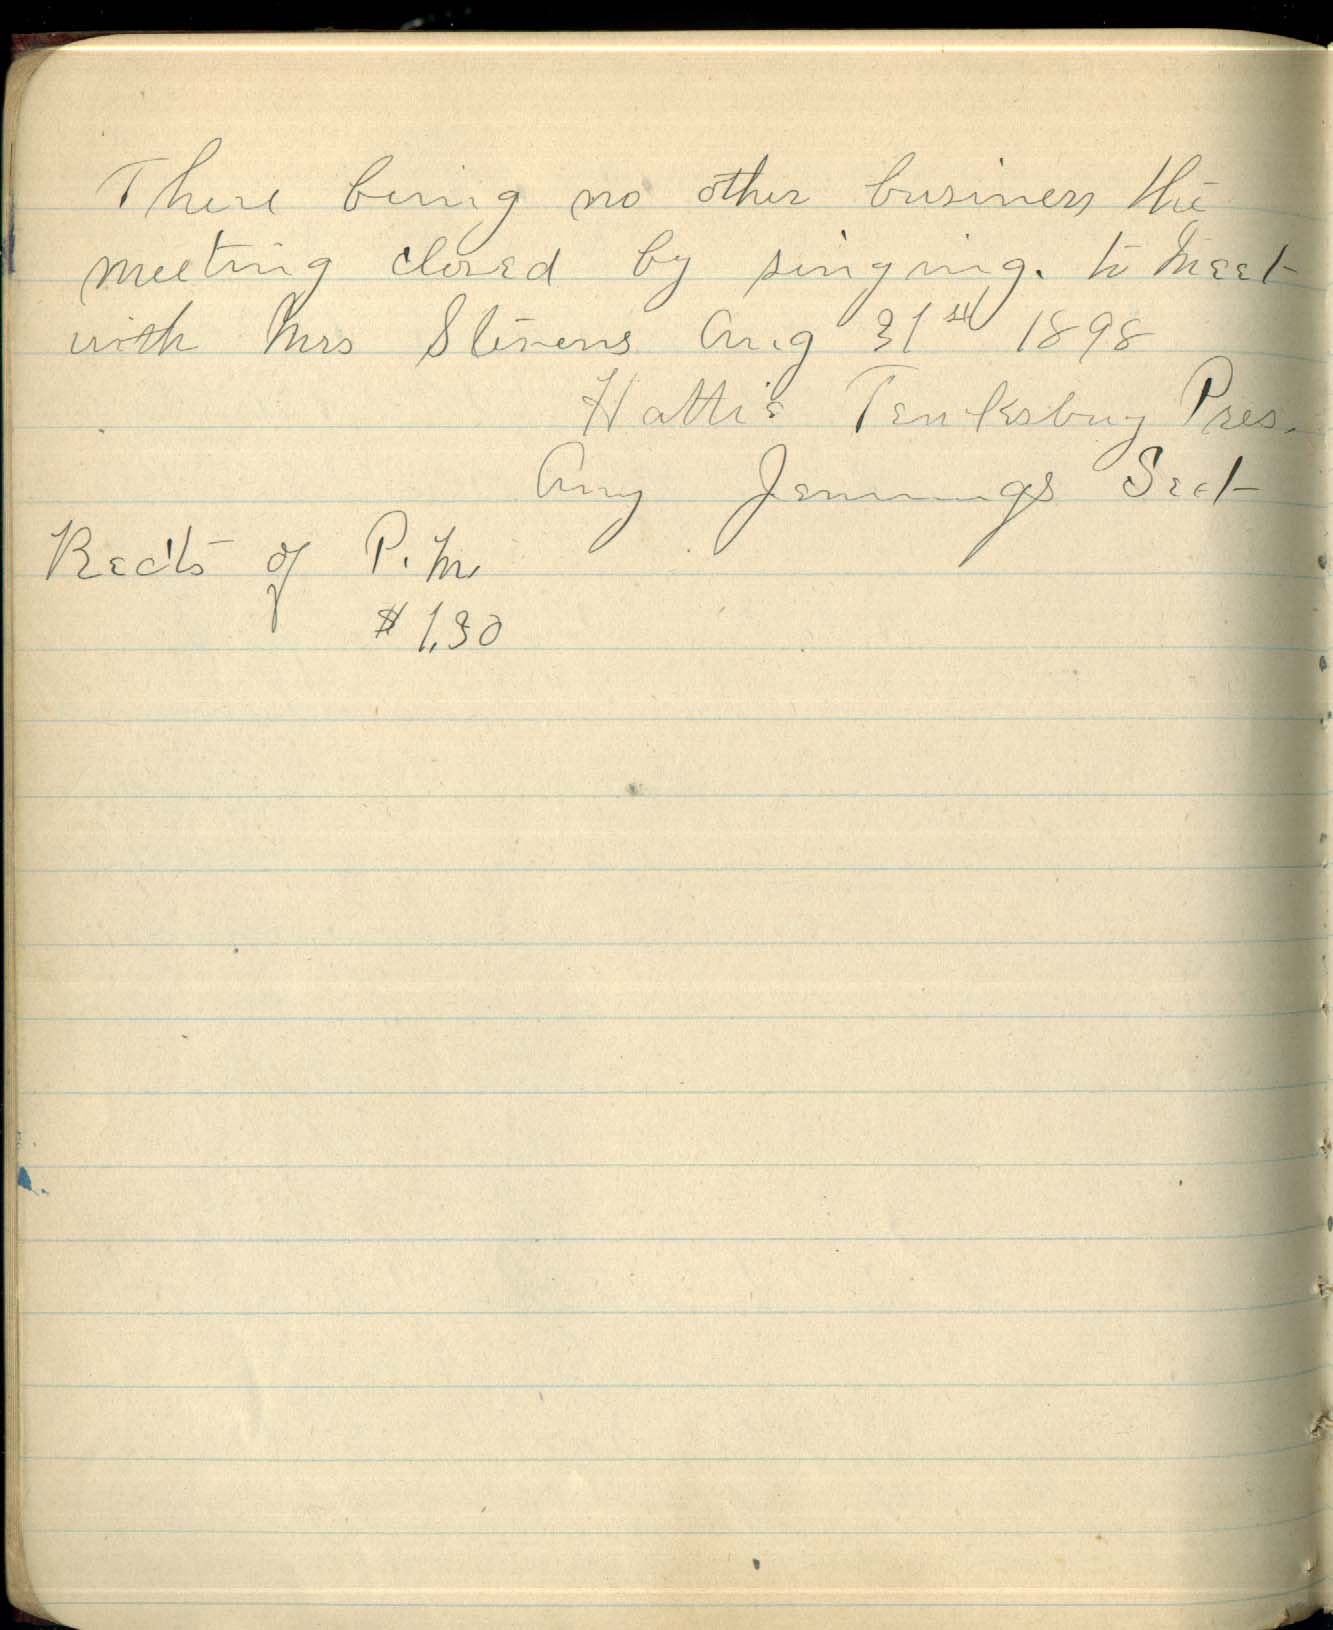 There being no other business the
meeting closed by singing. to meet
with Mrs Stevens Aug 31st 1898
Hattie Tewksbury Pres.
Amy Jennings Sect
Recd'ts of P.M
$1.30